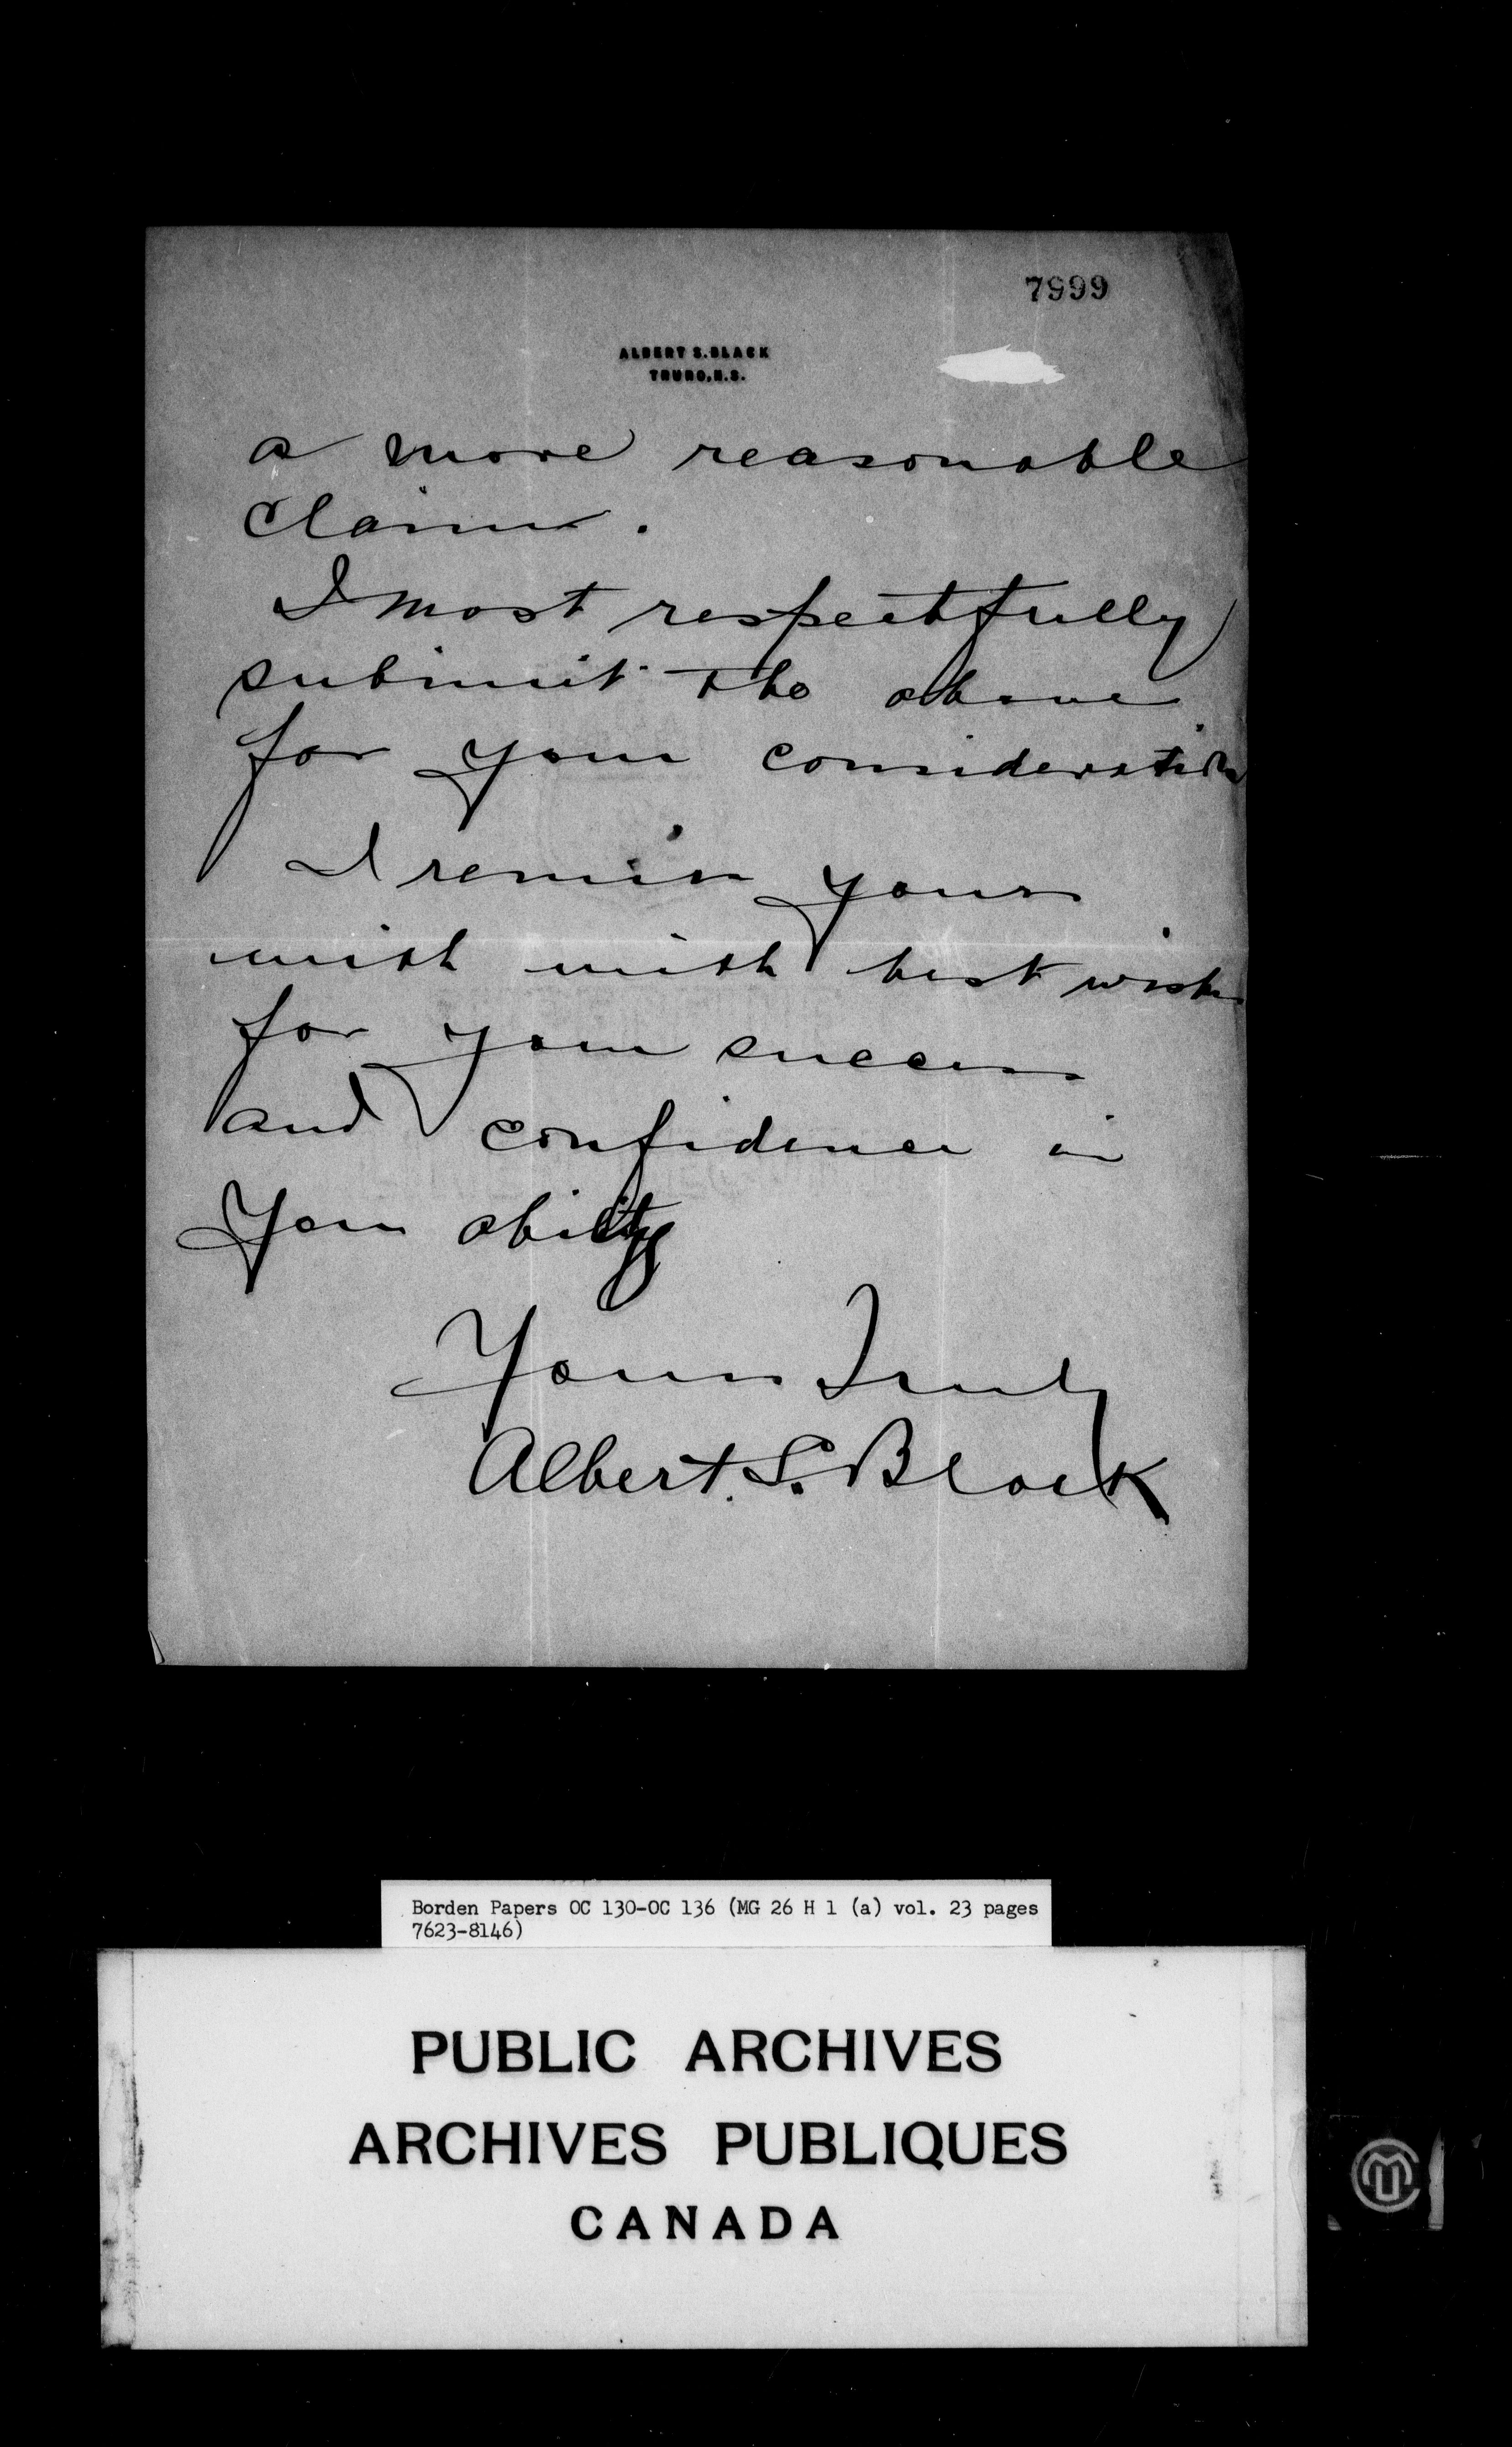 7999
ALBERT S. BLACK
TRURO, N.S.
a more reasonable
claim.
I most respectfully
submit the above
for your consideration
I remain yours
with with best wishes
for your success
and confidence in
your ability
Yours Truly
Albert. S. Black
Borden Papers OC 130-OC 136 (MG 26 H 1 (a) vol. 23 pages
7623-8146)
PUBLIC ARCHIVES
ARCHIVES PUBLIQUES
CANADA